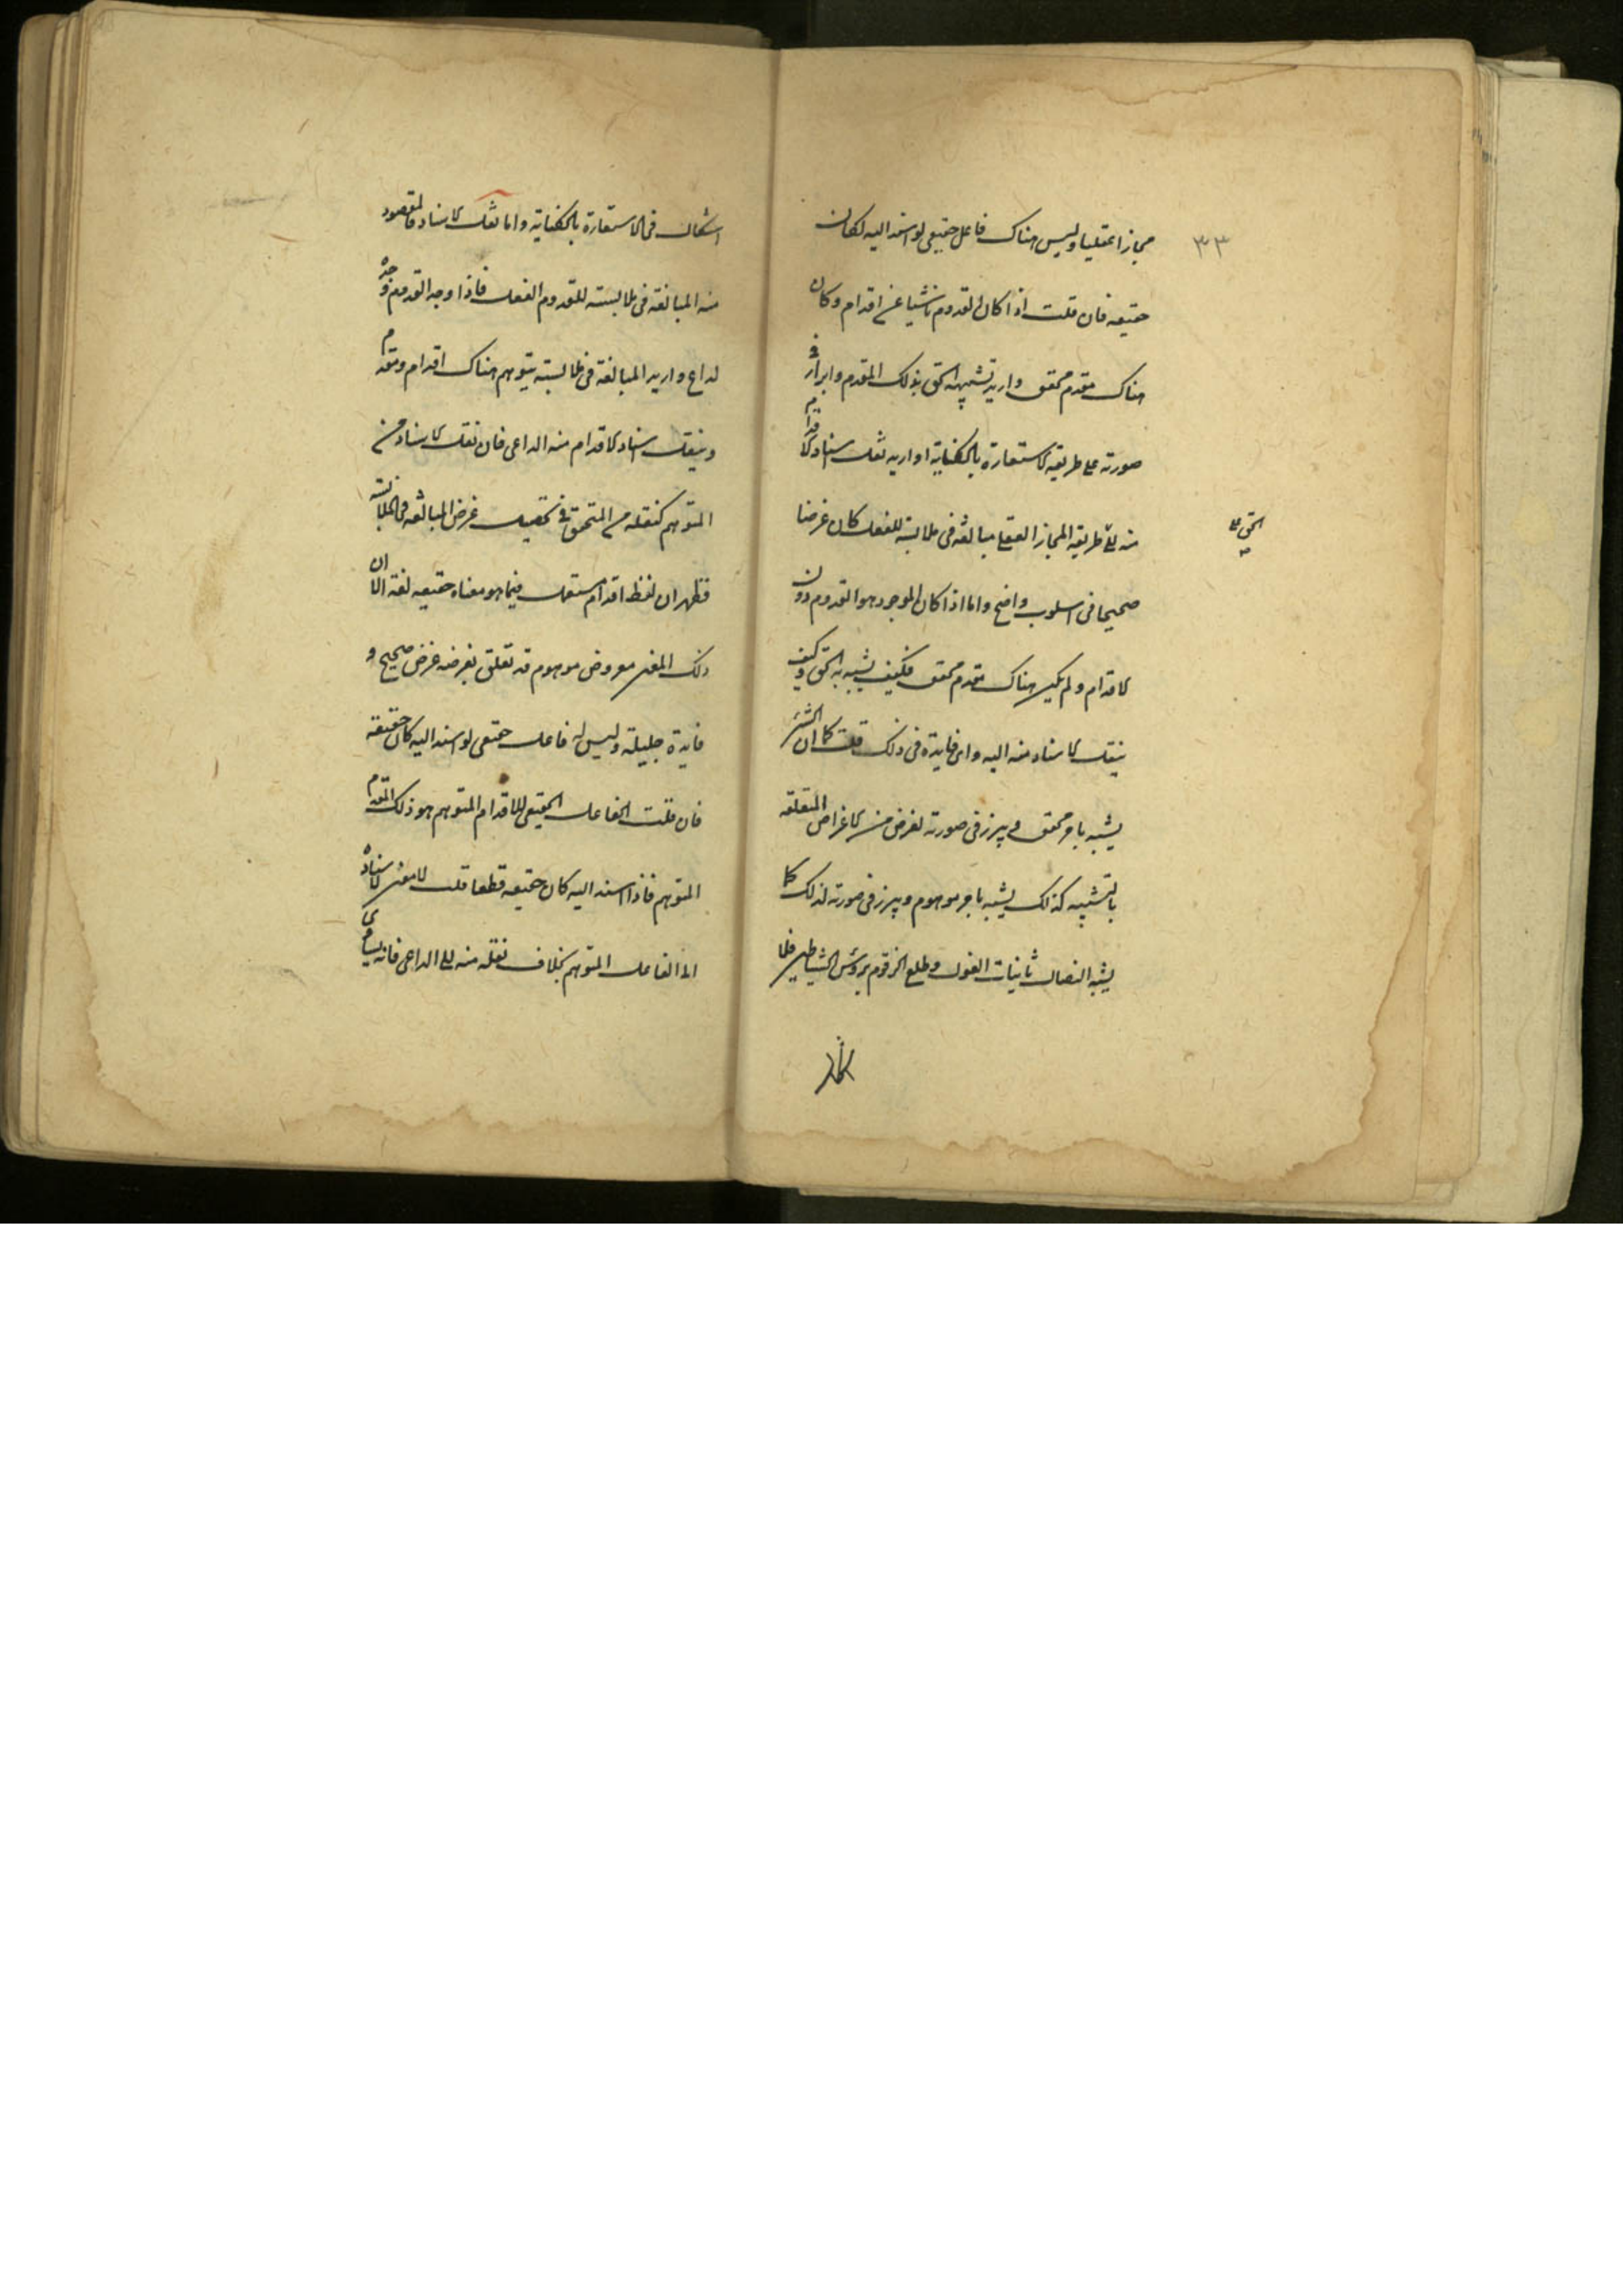 ٣٣
مجازا عقليا وليس هناك فاعل حقيقي لو اسند اليه لكان
حقيقه فان قلت اذا كان القدوم ناشيا عن اقدام وكان
هناك مقدم محقق واريد تشبيه الحق بذلك المقدم وابرازه في
صورته على طريقه الاستعارة بالكناية او اريد نقل اسناد الاقدام
منه على طريقه المجاز العقلي مبالغه في ملابسته للفعل كان غرضا
الحق على
صحيحا في اسلوب واضح واما اذا كان الموجود هو القدوم دون
الاقدام ولم يكن هناك مقدم محقق فكيف يشبه به الحق وكيف
ينقل الاسناد منه اليه واي فايدة في ذلك قلت كما ان الشئ
يشبه بامر محقق ويبرز في صورته لغرض من الاغراض المتعلقه
بالتشبيه كذلك يشبه بامر موهوم ويبرز في صورته لذلك كما
يشبه النصال بانياب الغول وطلع الزقوم برؤس الشياطين فلا
اشكال في الاستعارة بالكناية واما نقل الاسناد فالمقصود
منه المبالغه في ملابسته للقدوم الفعل فاذا وجد القدوم وحده
لداع واريد المبالغه في ملابسته يتوهم هناك اقدام ومقدم
وينقل اسناد الاقدام منه الى الداعي فان نقل الاسناد من
المتوهم كنقله من المتحقق في تحصيل غرض المبالغه في الملابسته
فظهر ان لفظ اقدام مستعمل فيما هو معناه حقيقه لغة الا ان
ذلك المعنى مفروض موهوم قد تعلق بفرضه غرض صحيح و
فايدة جليلة وليس له فاعل حقيقي لو اسند اليه كان حقيقه
فان قلت الفاعل الحقيقي للاقدام المتوهم هو ذلك المقدم
المتوهم فاذا اسند اليه كان حقيقه قطعا قلت لا معنى لاسناده
الى الفاعل المتوهم بخلاف نقله منه الى الداعي فانه